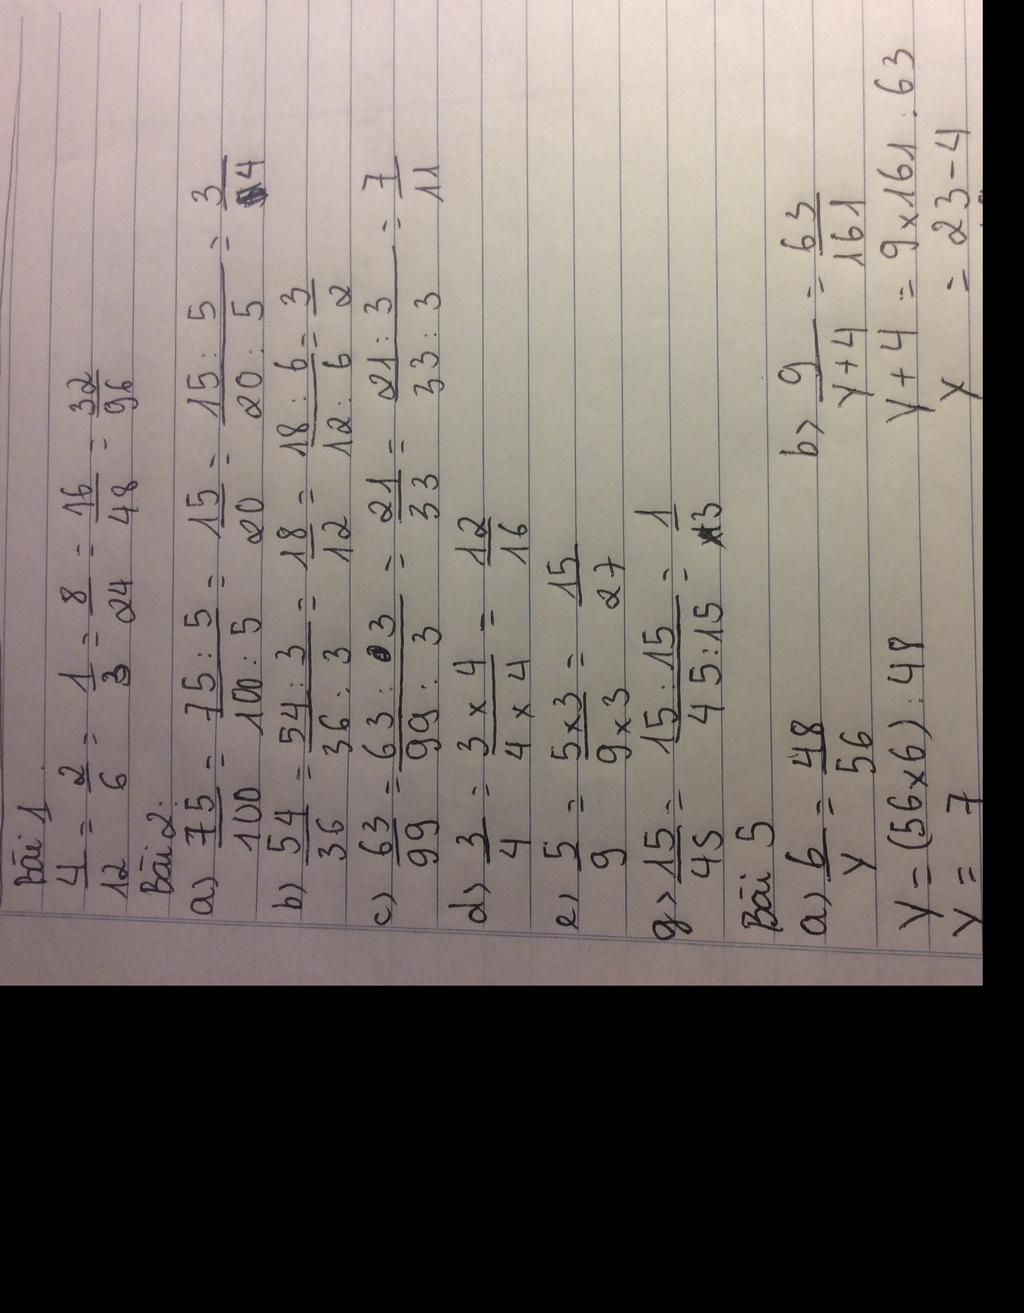 Bài 1
4/12 = 2/6 = 1/3 = 8/24 = 16/48 = 32/96
Bài 2.
a) 75/100 = 75 : 5/100 : 5 = 15/20 = 15 : 5/20 : 5 = 3/4
b) 54/36 = 54 : 3/36 : 3 = 18/12 = 18 : 6/12 : 6 = 3/2
c) 63/99 = 63 : 3/99 : 3 = 21/33 = 21 : 3/33 : 3 = 7/11
d) 3/4 = 3 x 4/4 x 4 = 12/16
e) 5/9 = 5x3/9x3 = 15/27
g) 15/45 = 15 : 15/45 : 15 = 1/3
Bài 5
a) 6/y = 48/56 b) 9/y+4 = 63/161
y = (56x6) : 48 y+4 = 9x161 : 63
y = 7 y = 23-4